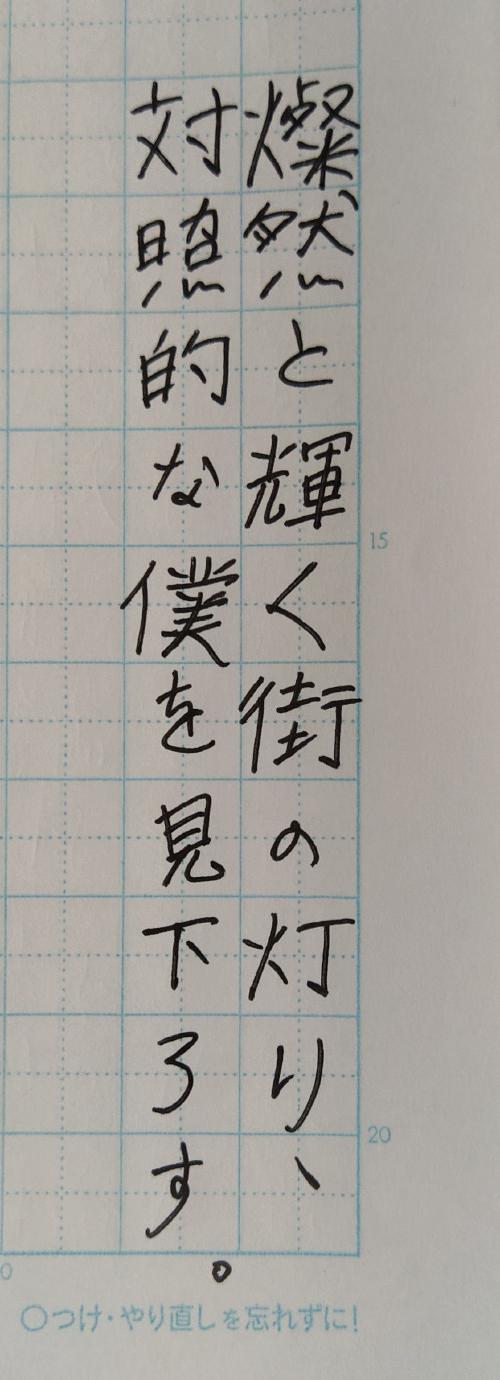 燦然と輝く街の灯り、
対照的な僕を見下ろす。
15
20
0
○つけ・やり直しを忘れずに!